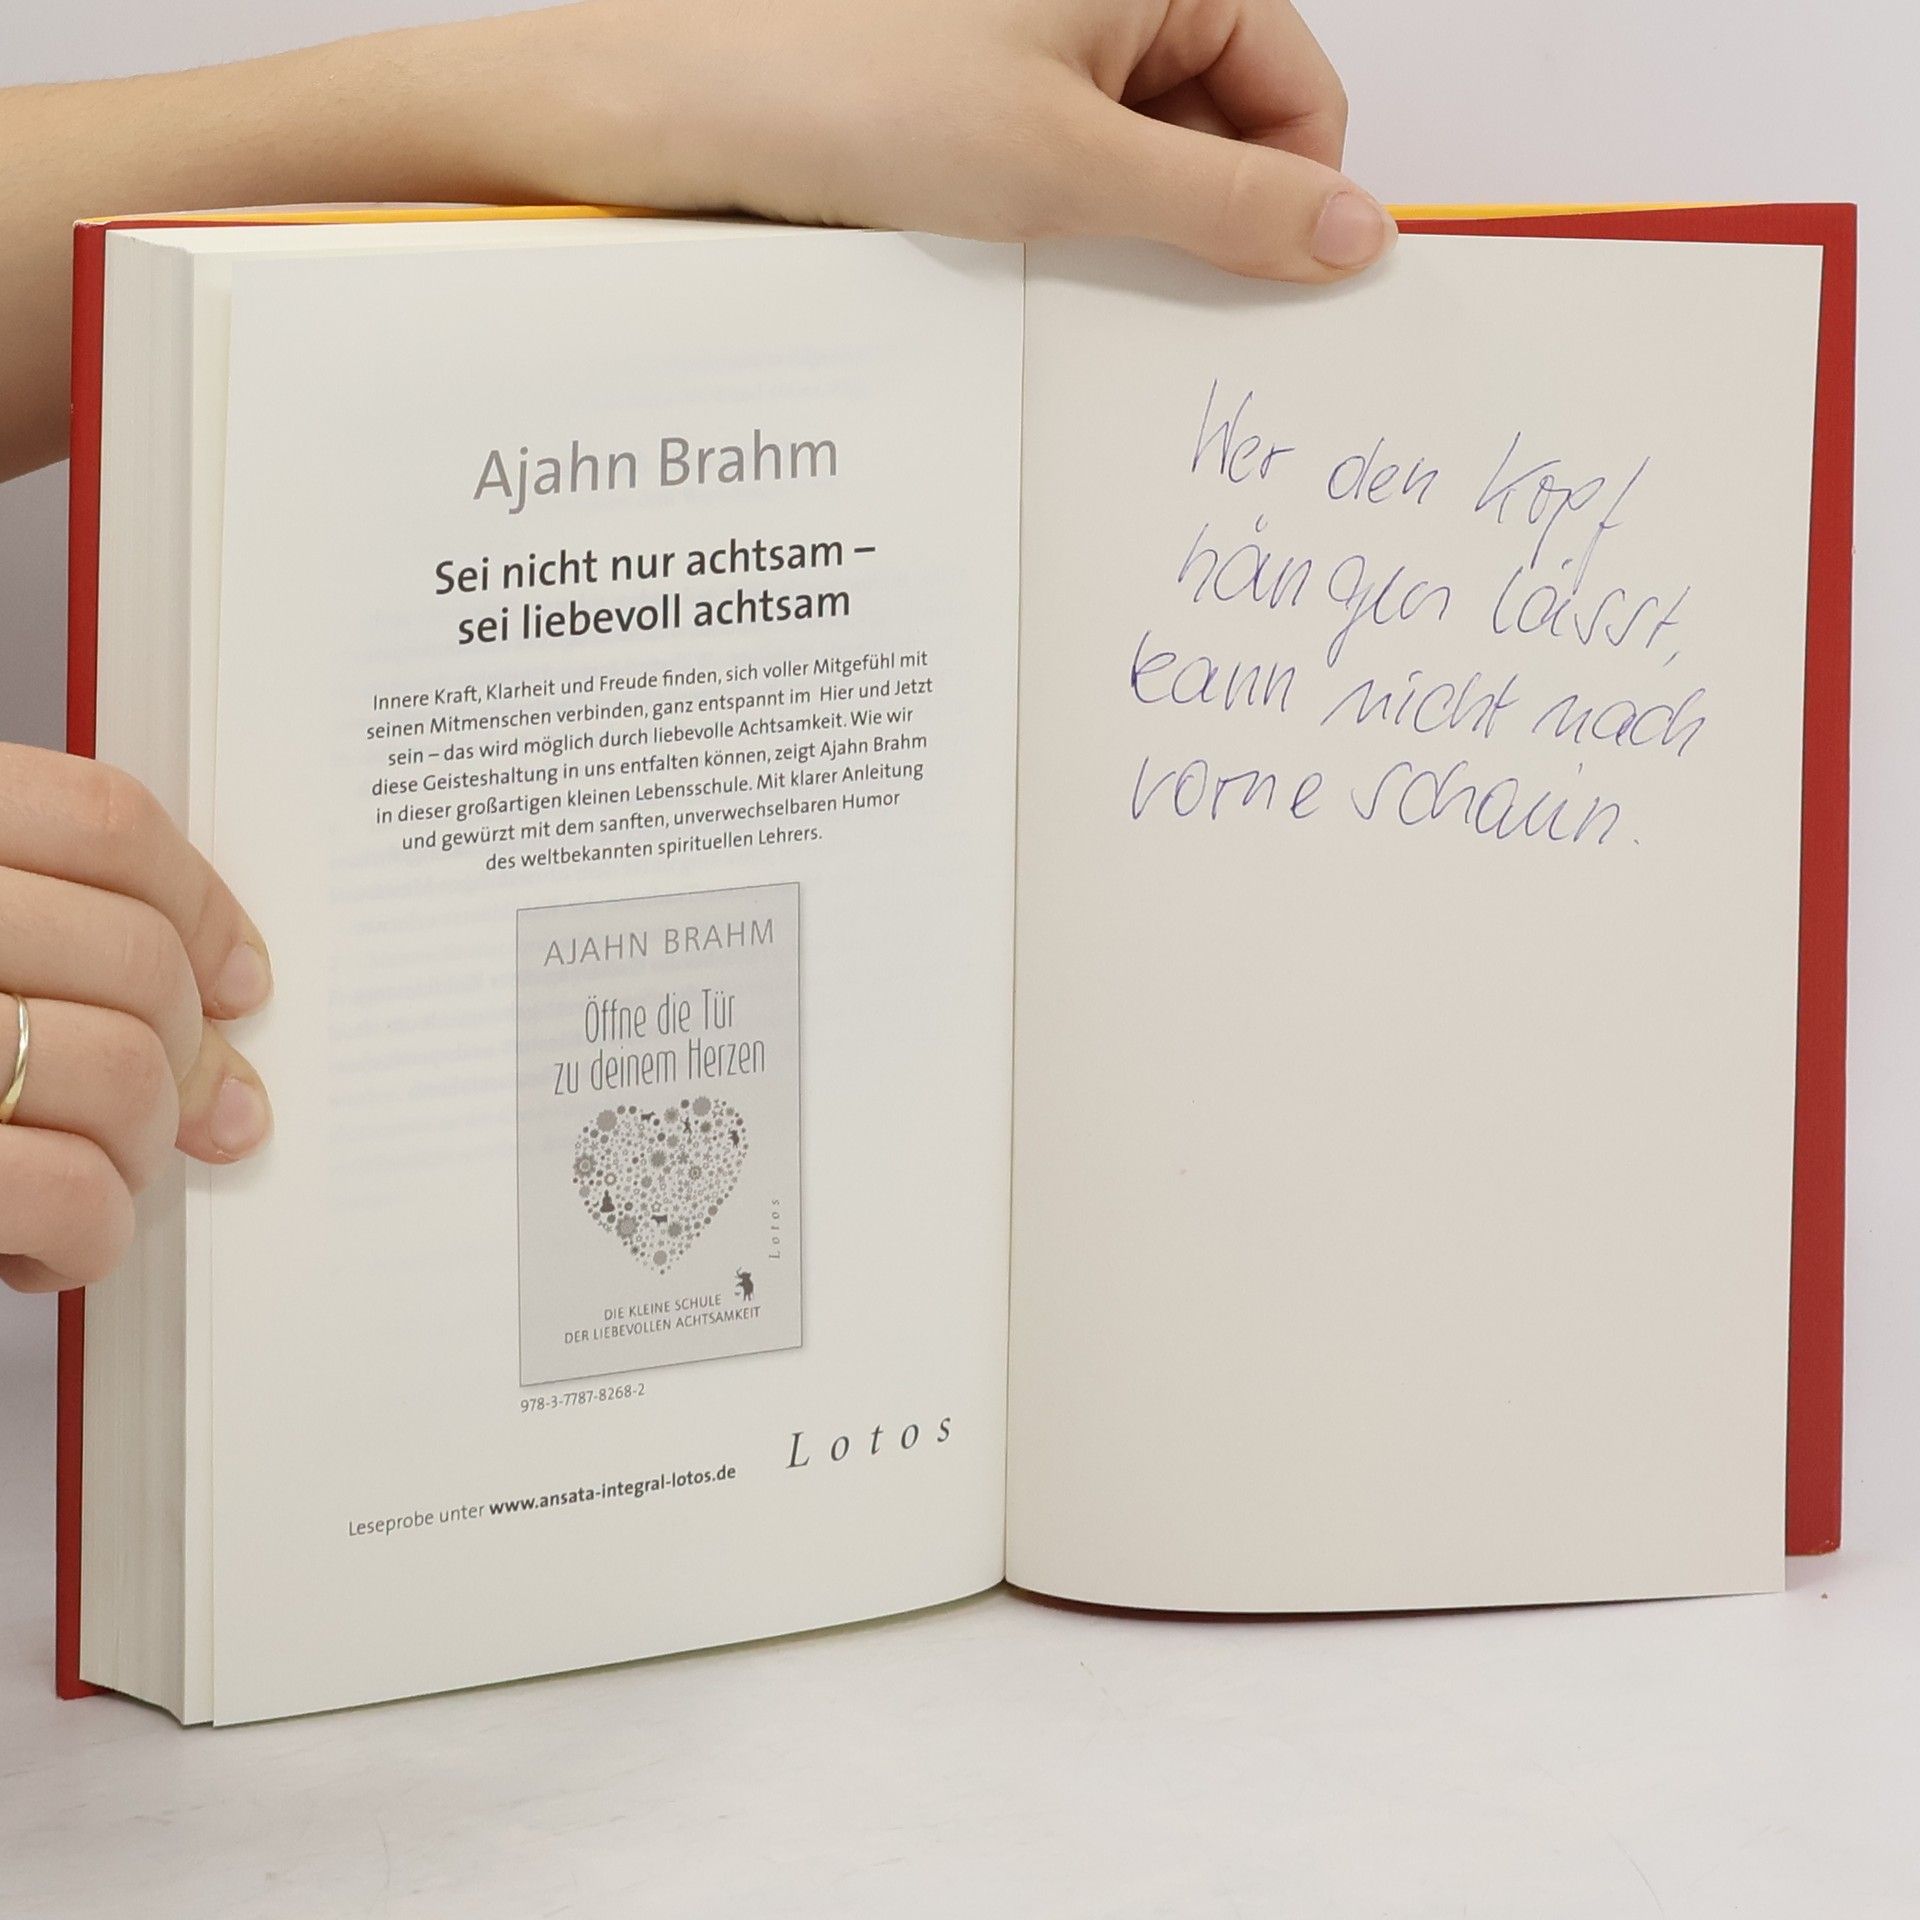 Ajahn Brahm
Sei nicht nur achtsam –
sei liebevoll achtsam
Innere Kraft, Klarheit und Freude finden, sich voller Mitgefühl mit
seinen Mitmenschen verbinden, ganz entspannt im Hier und Jetzt
sein – das wird möglich durch liebevolle Achtsamkeit. Wie wir
diese Geisteshaltung in uns entfalten können, zeigt Ajahn Brahm
in dieser großartigen kleinen Lebensschule. Mit klarer Anleitung
und gewürzt mit dem sanften, unverwechselbaren Humor
des weltbekannten spirituellen Lehrers.
AJAHN BRAHM
Öffne die Tür
zu deinem Herzen
Lotos
DIE KLEINE SCHULE
DER LIEBEVOLLEN ACHTSAMKEIT
978-3-7787-8268-2
Lotos
Leseprobe unter www.ansata-integral-lotos.de
Wer den Kopf
hängen lässt,
kann nicht nach
vorne schaun.